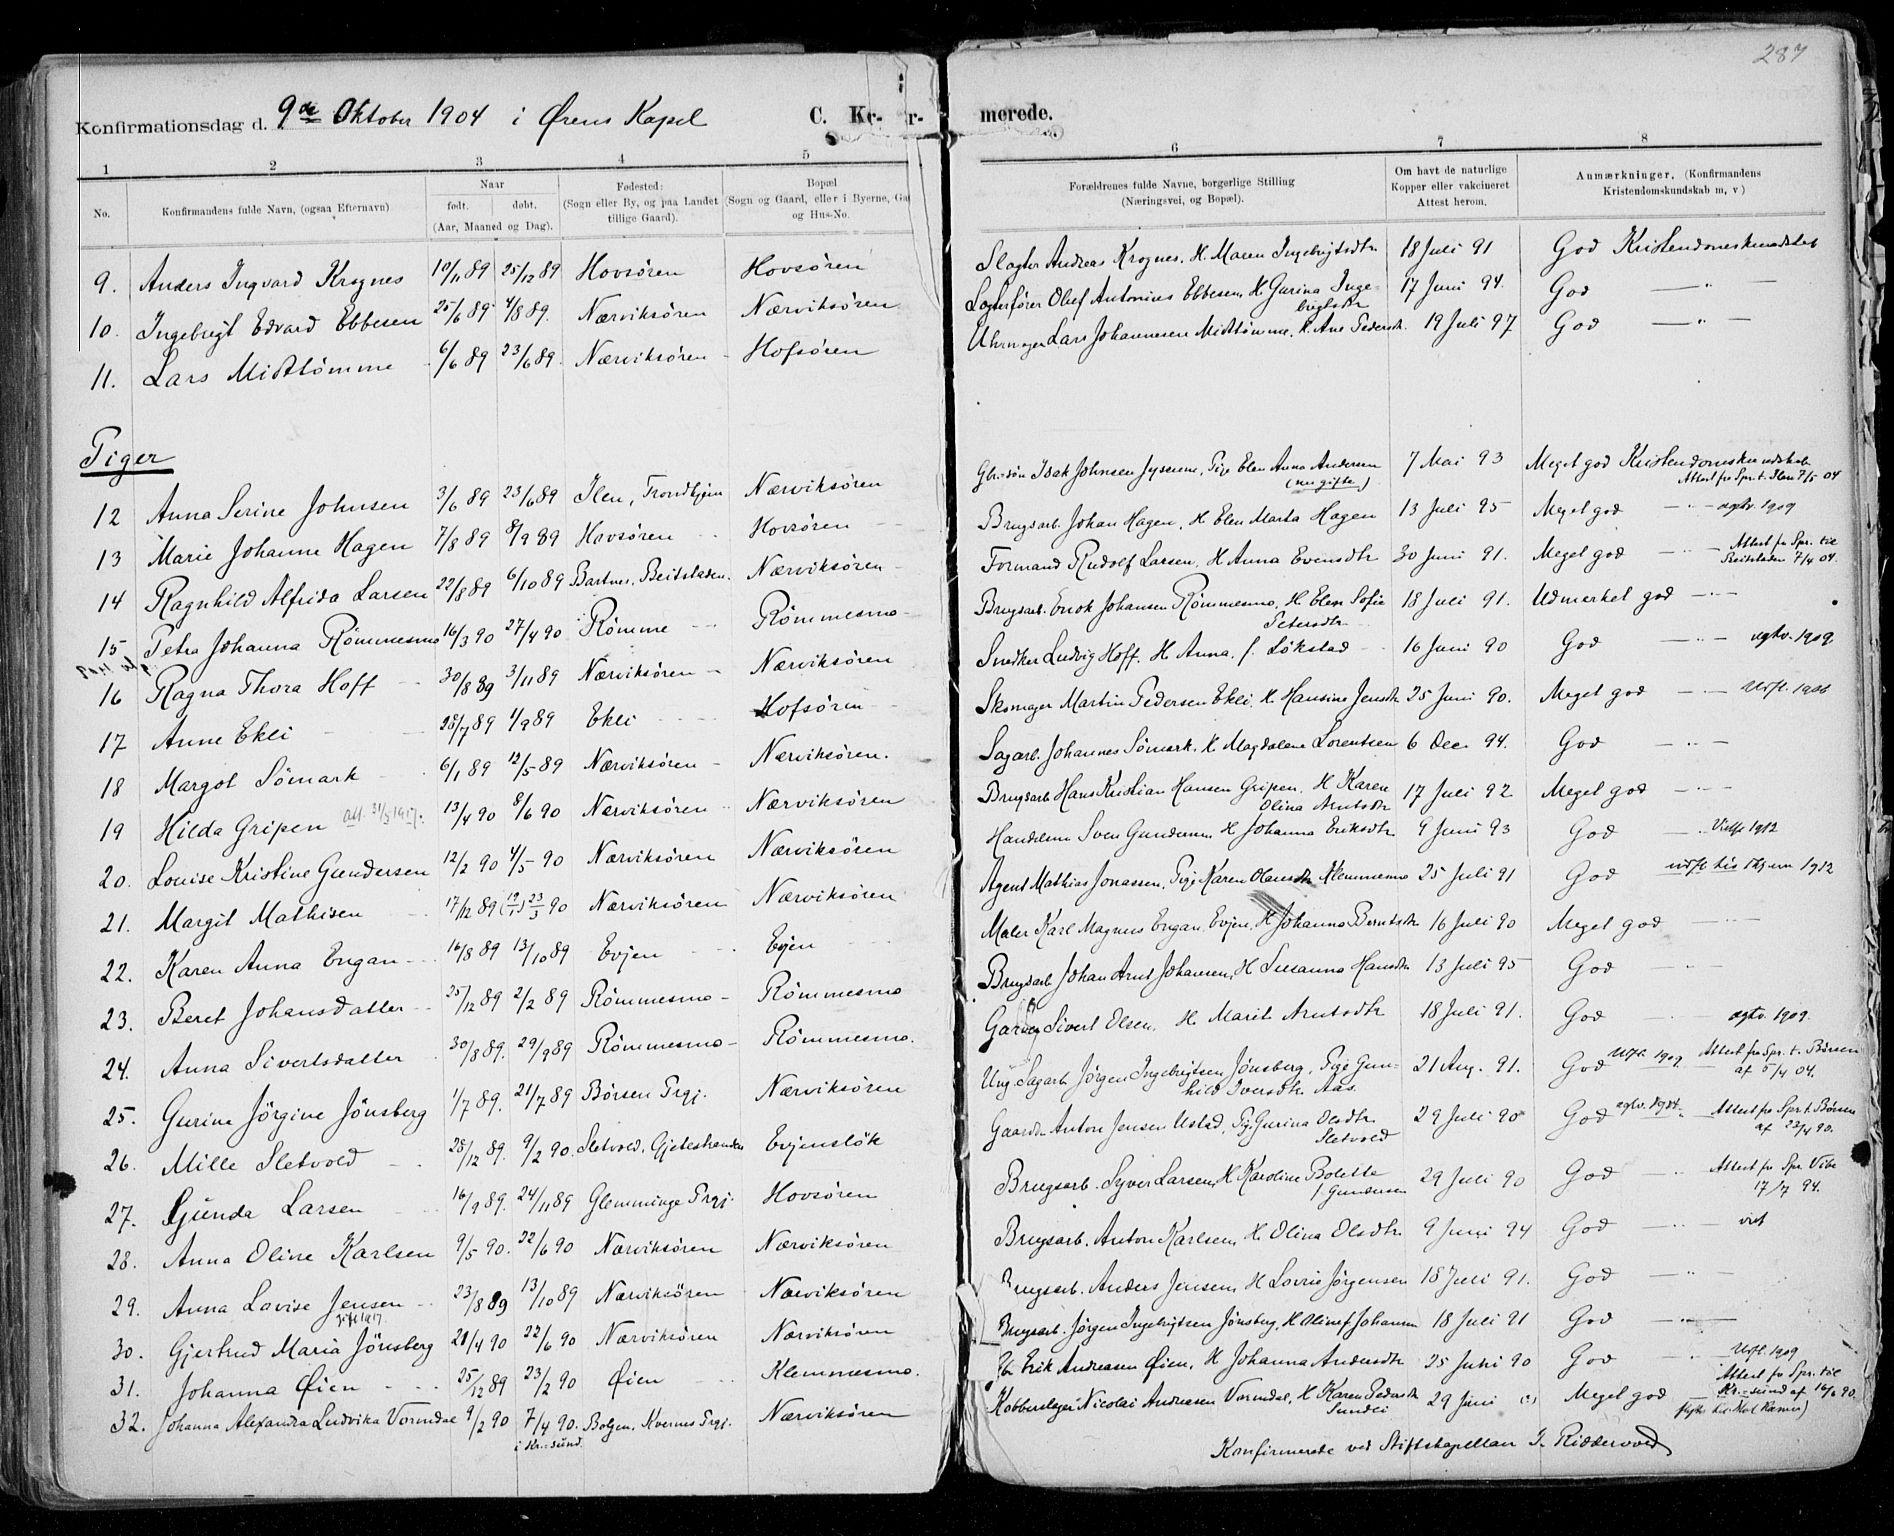 287
Konfirmationsdag d. 9de Oktober 1904 i Ørens Kapel C. Ko- r- merede.
1 2 3 4 5 6 7 8
No. Konfirmandens fulde Navn, (ogsaa Efternavn) Naar født. døbt. (Aar, Maaned og Dag). Fødested: (Sogn eller By, og paa Landet tillige Gaard). Bopæl (Sogn og Gaard, eller i Byerne, Ga og Hus-No. Forældrenes fulde Navne, borgerlige Stilling (Næringsvei, og Bopæl). Om havt de naturlige Kopper eller vakcineret Attest herom. Anmærkninger, (Konfirmandens Kristendomskundskab m, v)
9. Anders Ingvard Krognes 10/11 89 25/12 89 Hovsören Hovsören Slagter Andreas Krognes, H. Maren Ingebrigtsdtr 18 Juli 91 God Kristendomskundskab
10. Ingebrigt Edvard Ebbesen 25/6 89 4/8 89. Nærviksören Nærviksören Olef Antonius Ebbesen, H Gurina Ingebrigtsdtr 17 Juni 94. God — " —
11. Lars Midtlömme 6/6 89 23/6 89. Nærviksören Hofsören Uhrmager Lars Johannesen Midtlömme, H. Ane Pedersdtr. 19 Juli 97 God — " —
Piger
12 Anna Serine Johnsen 3/6 89 23/6 89 Ilen, Trondhjem Nærviksören Isak Johnsen, Pige Elen Anna Andersen (nu gifte) 7 Mai 93 Meget god Kristendomskundskab Attest fr Spr. t. Ilen 7/5 04
13 Marie Johanne Hagen 7/8 89 8/9 89 Hovsören Hovsören Brugsarb. Johan Hagen, H Elen Marta Hagen 13 Juli 95 Meget god — " — agtv. 1909
14 Ragnhild Alfrida Larsen 22/8 89 6/10 89 Bartnes, Beitstaden. Nærviksören Formand Rudolf Larsen, H Anna Evensdtr 30 Juni 91. Meget god — " — Attest fr Spr. til Beitstaden 7/4 04.
15 Petra Johanna Römmesmo 16/3 90 27/4 90 Römme Römmesmo Brugsarb. Enok Johansen Römmesmo, H Elen Sofie Petersdtr 18 Juli 91. Udmerket god — " —
16 Ragna Thora Hoff 30/8 89 3/11 89 Nærviksören Nærviksören Snedker Ludvig Hoff. H Anna, f. Lökstad 16 Juni 90 God — " — agtv. 1909
17 Anne Ekli 28/7 89 1/9 89 Ekli Hofsören Skomager Martin Pedersen Ekli, H. Hansine Jensdtr 25 Juni 90. Meget god — " — Udfl. 1906
18 Margot Sömark 6/1 89 12/5 89 Nærviksören Nærviksören. Sagarb. Johannes Sömark, H Magdalene Lorentsen 6 Dec. 94. God — " —
19 Hilda Gripen att. 31/3 1917. 13/4 90 8/6 90 Nærviksören Nærviksören Brugsarb Hans Kristian Hansen Gripen, H Karen Olina Arntsdtr 17 Juli 92 Meget god — " —
20. Louise Kristine Gundersen 12/2 90 4/5 90 Nærviksören Nærviksören Handelsm Sven Gundersen H Johanna Eriksdtr 9 Juni 93 God — " Vielse 1912
21. Margit Mathisen 17/12 89 (19/1) 23/3 90 Nærviksören Nærviksören Agent Mathias Jonassen, Pige Karen Olausdtr Klemmesmo 25 Juli 91 God udfl. til Thjem 1912
22. Karen Anna Engan 16/8 89 13/10 89 Evjen Evjen Maler Karl Magnus Engan, Evjen, H Johanna Berntsdtr 16 Juli 90 Meget god
23. Beret Johansdatter 25/12 89 2/2 89 Römmesmo Römmesmo Brugsarb Johan Arnt Johansen, H Susanna Hansdtr 13 Juli 95 God — " —
24. Anna Sivertsdatter 30/8 89. 29/9 89 Römmesmo Römmesmo. Garver Sivert Olsen, H. Marit Arntsdtr 18 Juli 91. God — " — agtv. 1909.
25. Gurine Jörgine Jönsberg 1/7 89. 21/7 89 Börsen Prgj. Nærviksören Ung. Sagarb Jörgen Ingebrigtsen Jönsberg, Pige Gunhild Iversdtr Aas. 21 Aug. 91. God Udfl. 1909 Attest fra Spr. t. Börsen af 5/4 04.
26. Mille Sletvold 28/12 89. 9/2 90. Sletvold, Gjetestranden Evjenslök Gaardbr Anton Jensen Ustad, Pig. Gurina Olsdtr Sletvold 29 Juli 90 God Attest fr Spr. t. Börsen af 22/4 90.
27. Gunda Larsen 16/9 89. 24/11 89 Glemminge Prgj. Hovsören Brugsarb. Syver Larsen, H Karoline Bolette f Gundersen 29 Juli 90 God — " Attest fr Spr Vibe 17/7 94.
28. Anna Oline Karlsen 9/5 90. 22/6 90 Nærviksören Nærviksören Brugsarb. Anton Karlsen, H Olina Olsdtr 9 Juni 94 God — " — viet
29. Anna Lovise Jensen 23/8 89 13/10 89 Nærviksören Nærviksören Brugsarb. Anders Jensen, H Lovise Jörgensen 18 Juli 91. God — " —
30. Gjertrud Maria Jönsberg 21/4 90 22/6 90 Nærviksören Nærviksören Brugsarb. Jörgen Ingebrigtsen Jönsberg, H Olinef Johansen 18 Juli 91 God — " —
31. Johanna Øien 25/12 89 23/2 90 Øien Klemmesmo. Erik Andreasen Øien, H Johanna Andersdtr 25 Juni 90 God — " — Udfl. 1909
32. Johanna Alexandra Ludvika Vormdal 9/2 90 7/4 90. i Kr.-sund. Bolgen, Kvernes Prgj. Nærviksören Kobberslager Nicolai Andreasen Vormdal, H Karen Pedersdtr Sundli 29 Juni Meget god Attest fr Spr. til Kr.-sund af 16/6 90.
Konfirmerede ved Stiftskapellan J. Riddervold